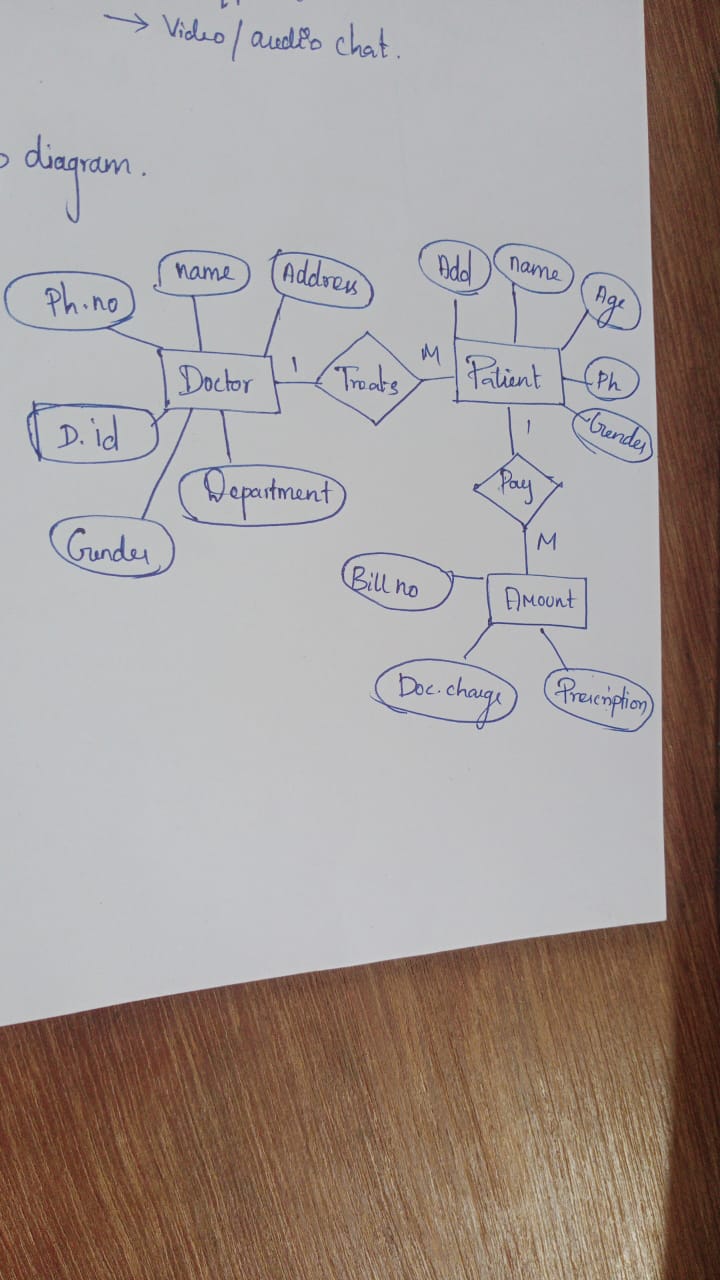 → Video / audio chat.
diagram.
Ph.no
name
Address
D.id
Doctor
Gender
Department
1
Treats
M
Add
name
Age
Patient
Ph
Gender
1
Pay
M
Bill no
Amount
Doc.charge
Prescription